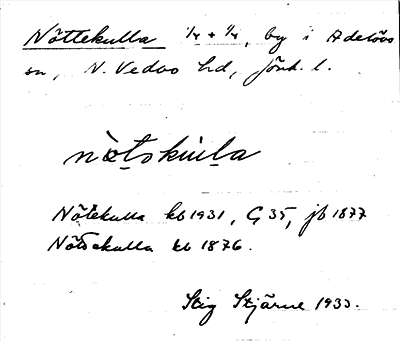 Nöttekulla 1/4 + 1/4, by i Adelövs
sn, N. Vedbo hd, Jönk. l.
nötskulla
Nötekulla kb 1931, G 35, jb 1877
Nötsekulla kb 1876.
Stig Stjärne 1933.